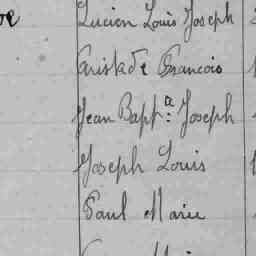 Lucien Louis Joseph
Aristide Francois
Jean Bapt.te Joseph
Joseph Louis
Paul Marie